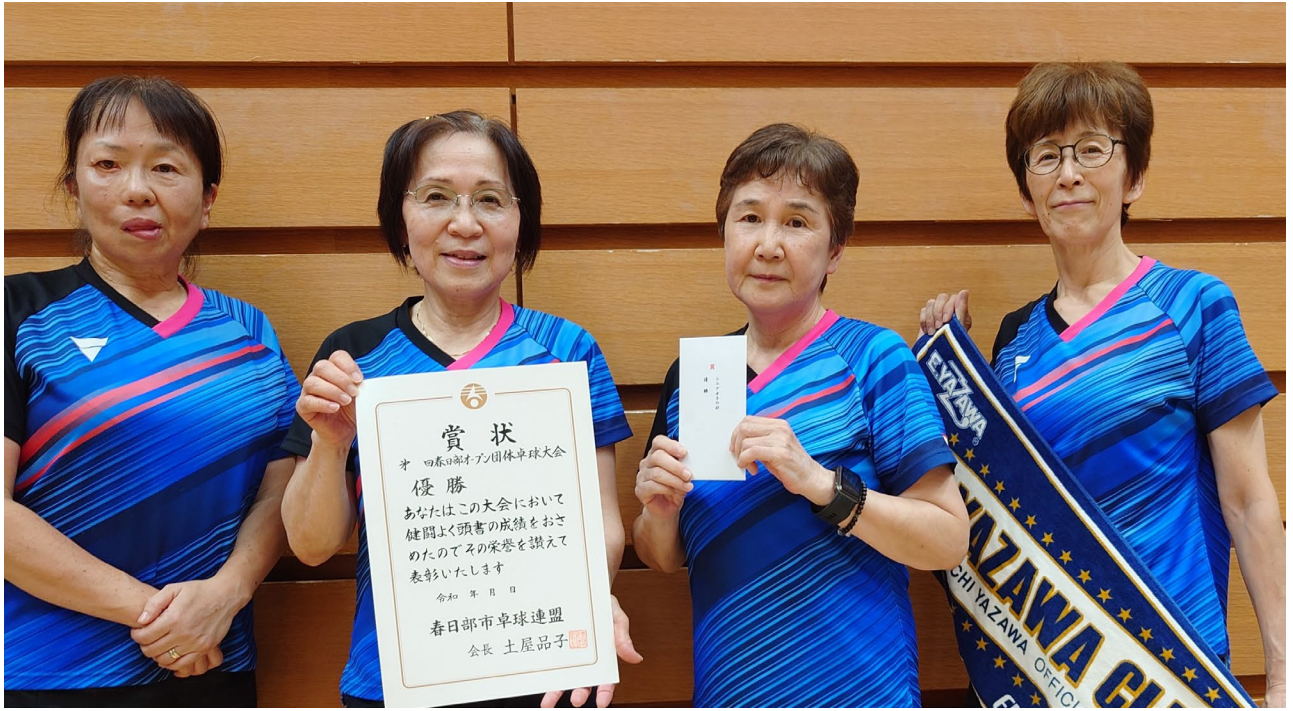 春
賞状
第 回春日部オープン団体卓球大会
優勝
あなたはこの大会において
健闘よく頭書の成績をおさ
めたのでその栄誉を讃えて
表彰いたします
令和 年 月 日
春日部市卓球連盟
会長 土屋品子
賞
優勝
E.YAZAWA
YAZAWA CLU
CHI YAZAWA OFFICI